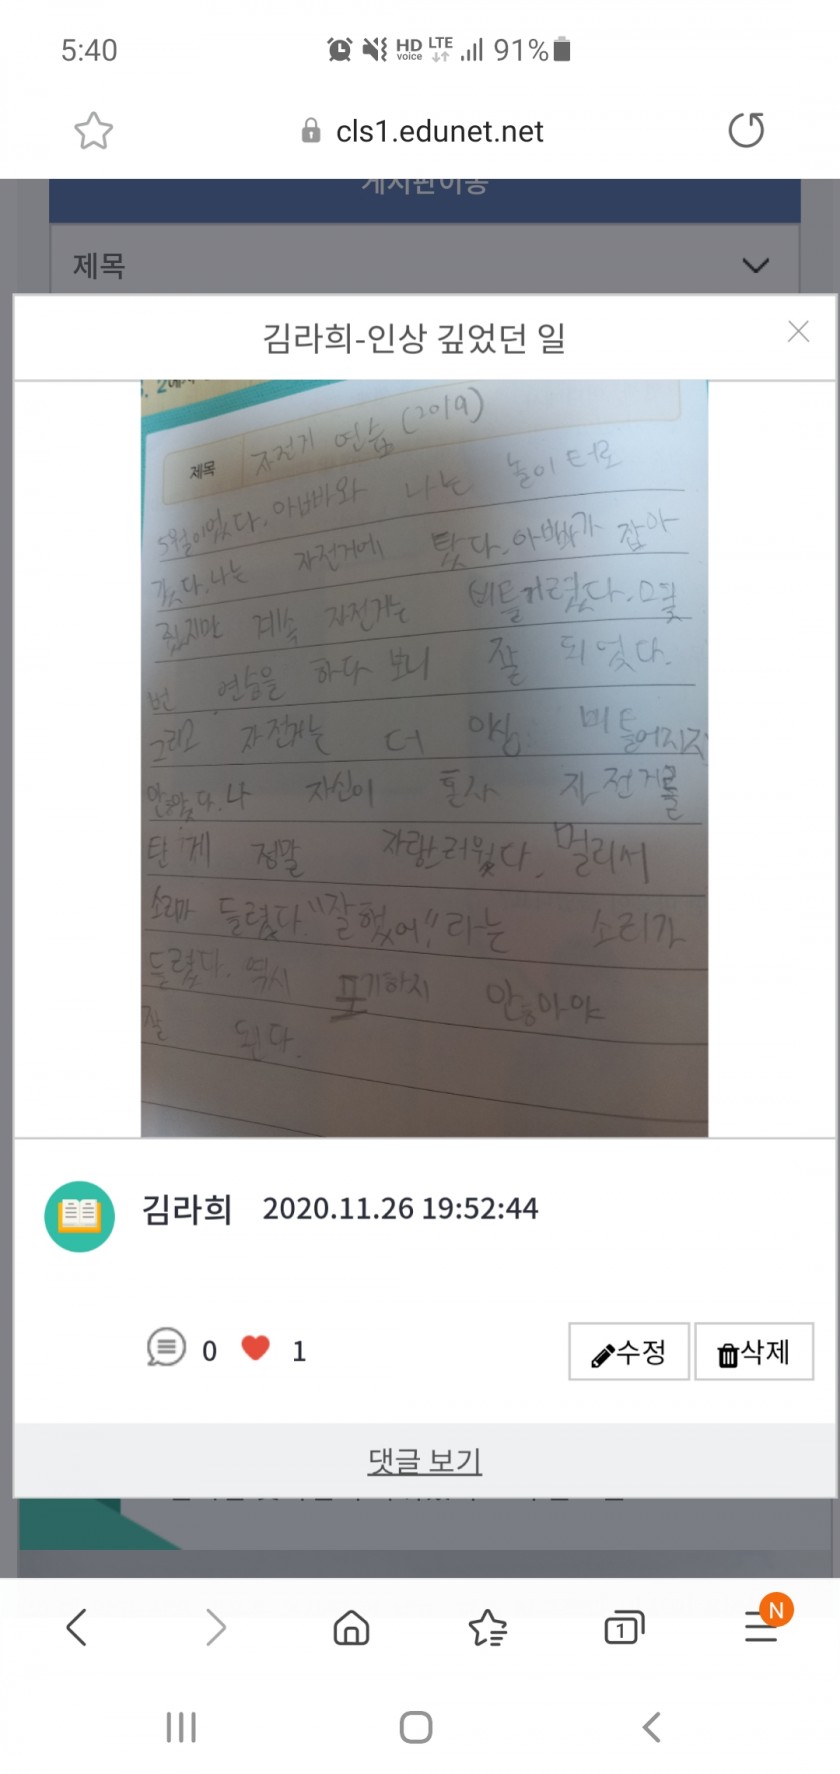 5:40 HD voice LTE 91%
cls1.edunet.net
게시판이동
제목
김라희-인상 깊었던 일
제목 자전거 연습 (2019)
5월이었다. 아빠와 나는 놀이터로
갔다. 나는 자전거에 탔다. 아빠가 잡아
줬지만 계속 자전거는 비틀거렸다. 몇
번 연습을 하다 보니 잘 되었다.
그리고 자전거는 더 이상 비틀어지지
않았다. 나 자신이 혼자 자전거를
탄 게 정말 자랑스러웠다. 멀리서
소리가 들렸다. "잘했어!" 라는 소리가
들렸다. 역시 포기하지 않아야
잘 된다.
김라희 2020.11.26 19:52:44
0 1 수정 삭제
댓글 보기
1 N